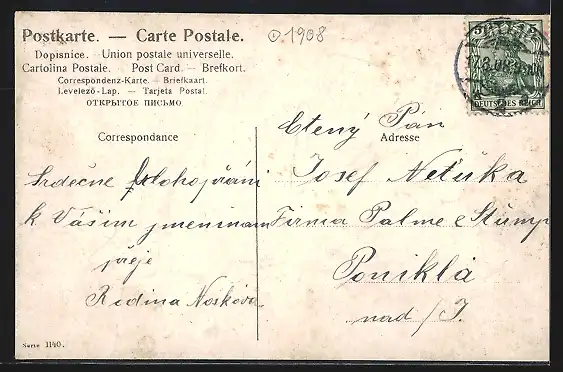 Postkarte. — Carte Postale.
Dopisnice. - Union postale universelle.
Cartolina Postale. — Post Card. — Brefkort.
Correspondenz-Karte. — Briefkaart.
Levelező-Lap. — Tarjeta Postal.
ОТКРЫТОЕ ПИСЬМО
1908
DEUTSCHES REICH
Correspondance
Adresse
Srdečné blahopřání
k Vašim jmeninam
přeje
Rodina Noskova
Ctený Pán
Josef Netuka
Firma Palme & Stump
Poniklá
nad /J.
Serie 1140.